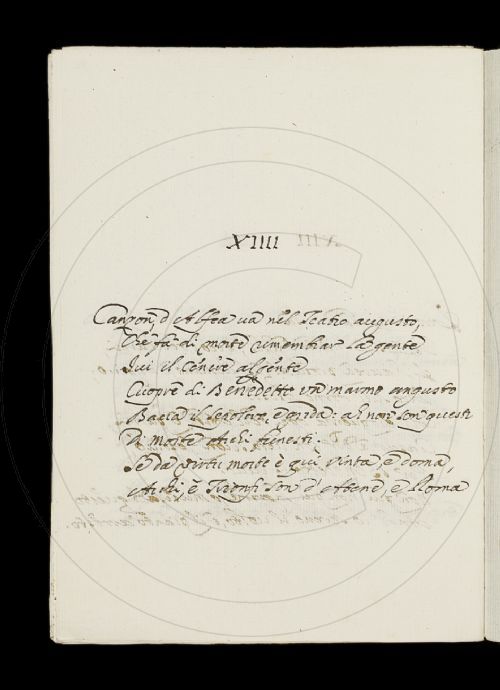 XIIII
Canzon, d'Alfea và nel Teatro augusto,
Che fà di morte rimembrar la gente
Iui il cenere algente
Cuopre di Benedetto vn marmo angusto
Bacia il sepolcro, e grida: ah non son questi
Di morte funesti.
Se da virtù morte è quì vinta, e doma,
e Trionfi son d'Athene, e Roma